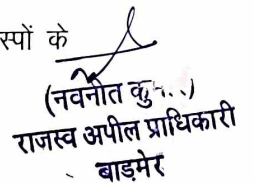 स्पों के
(नवनीत कु
राजस्व अपील प्राधिकारी
बाड़मेर